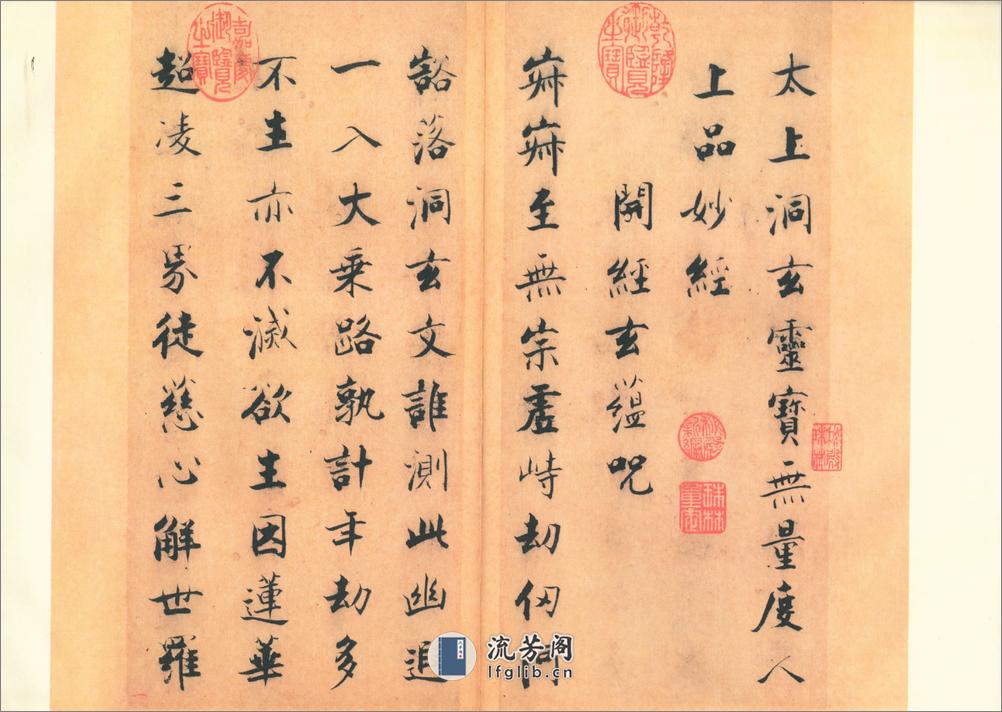 太上洞玄靈寶無量度人
上品妙經
開經玄蘊呪
寂寂至無宗虛峙劫仞阿
豁落洞玄文誰測此幽遐
一入大乘路孰計年劫多
不生亦不滅欲生因蓮華
超凌三界徒慈心解世羅
乾隆御覽之寶
嘉慶御覽之寶
秘殿珠林
秘殿新編
珠林重定
流芳阁
lfglib.cn